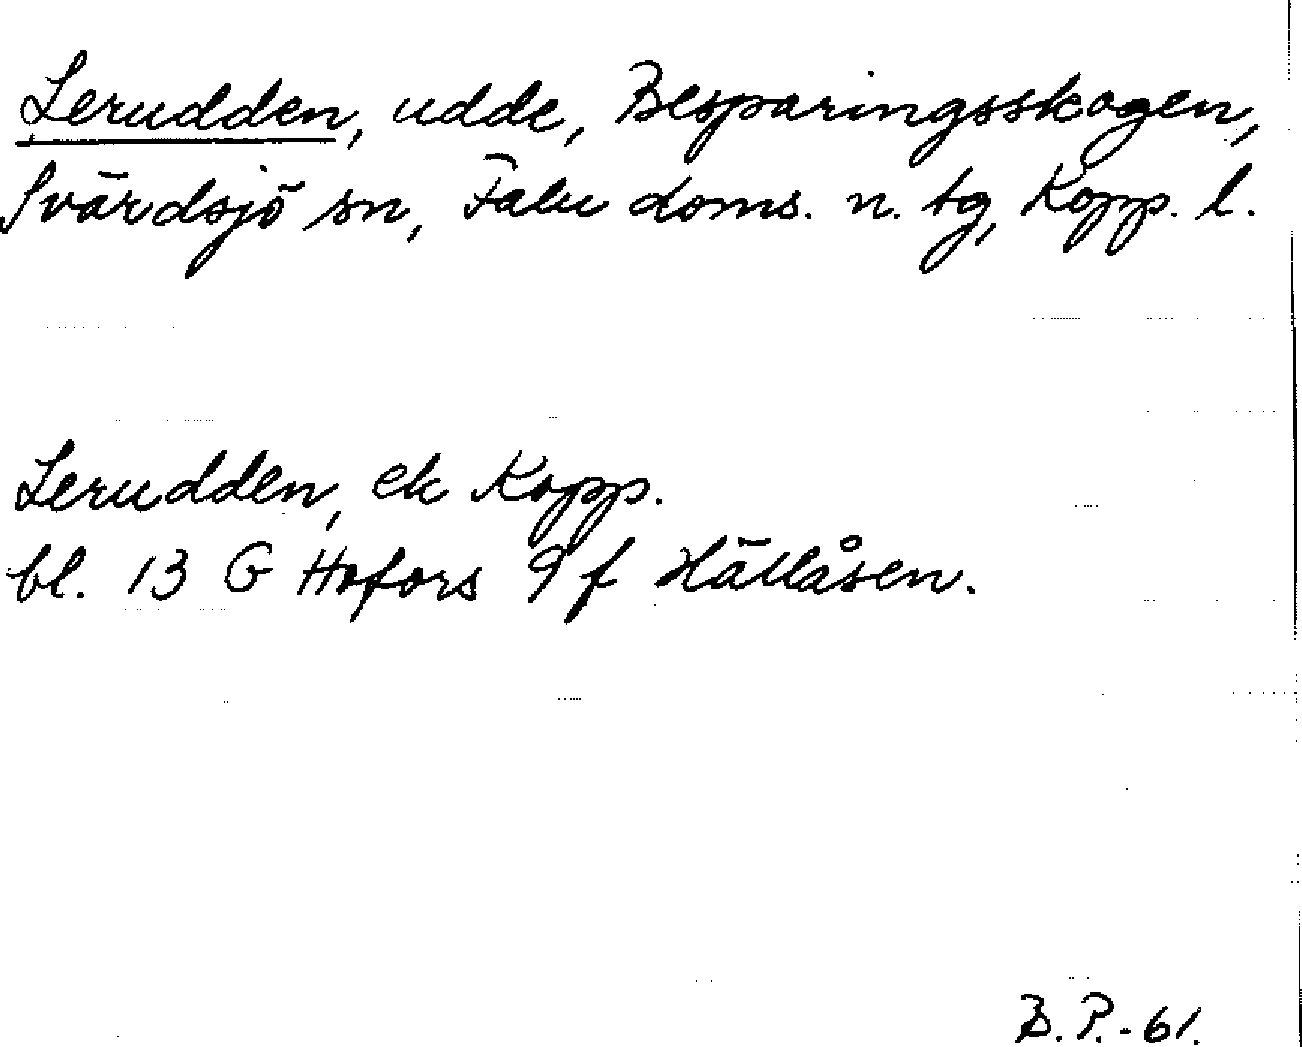 Lerudden, udde, Besparingsskogen,
Svärdsjö sn, Falu doms. n. tg, Kopp. l.
Lerudden, ek Kopp.
bl. 13 G Hofors 9 f Hällåsen.
B. P. - 61.